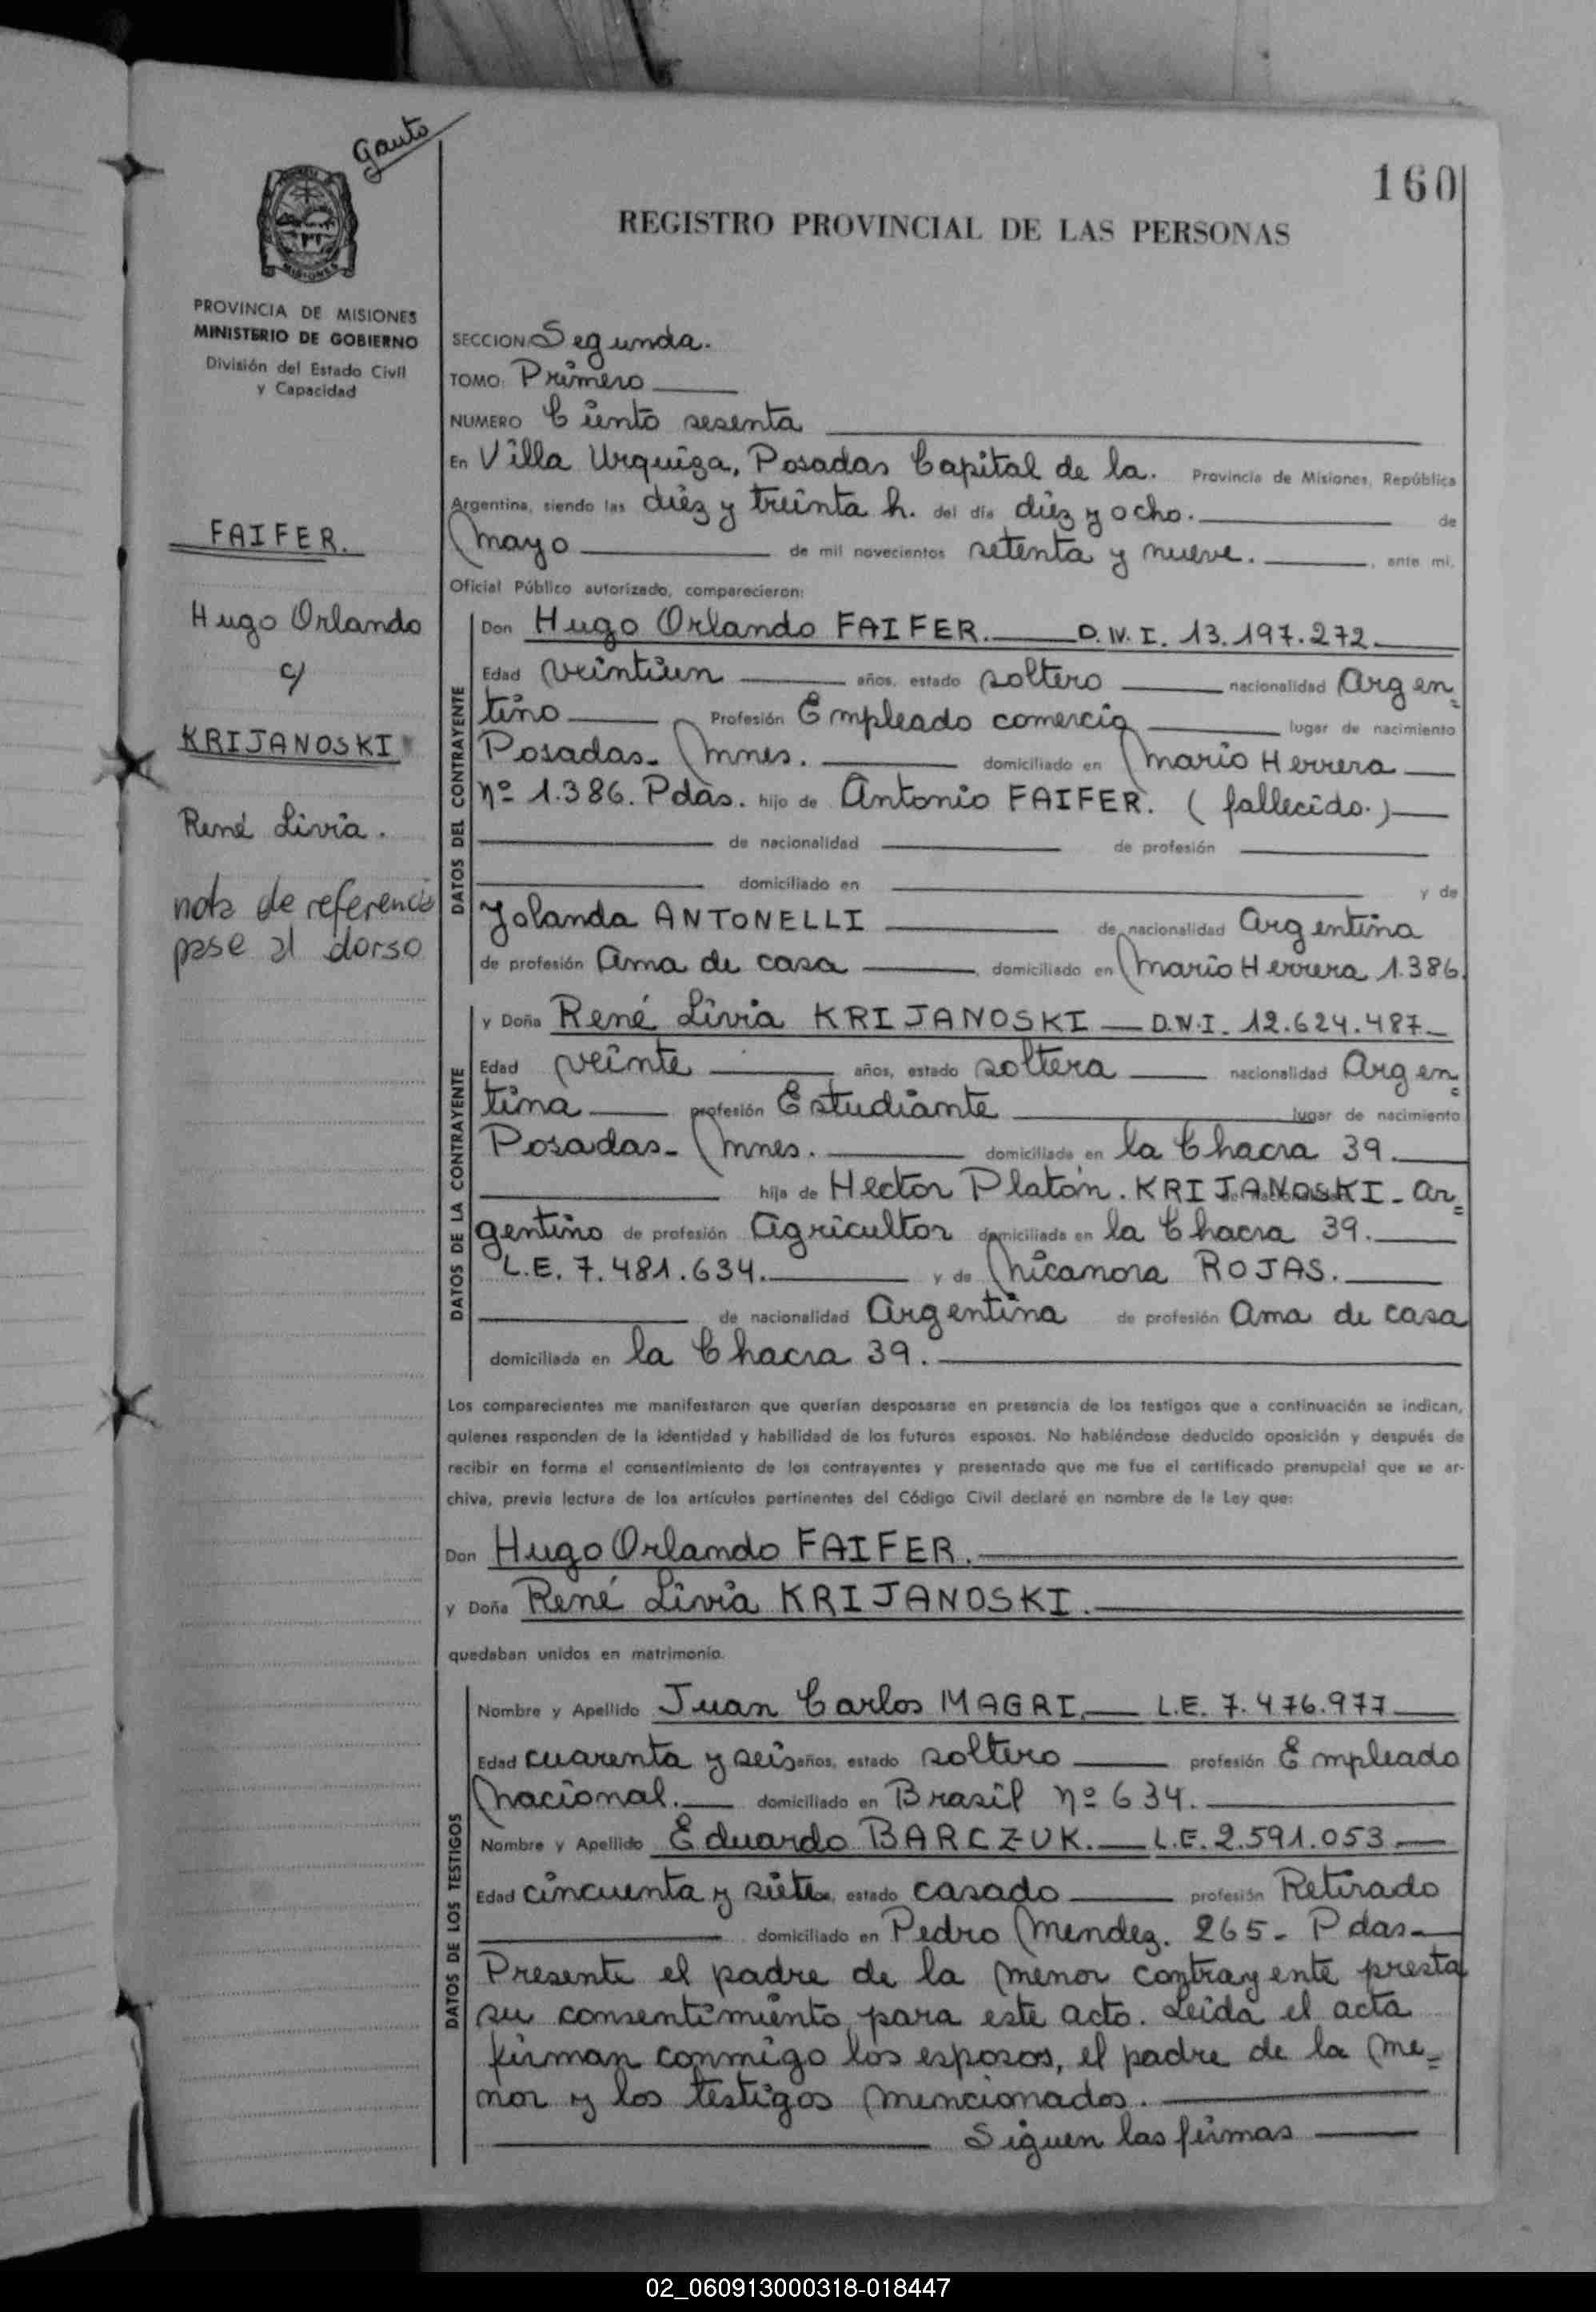 Gauto
160
REGISTRO PROVINCIAL DE LAS PERSONAS
MISIONES
PROVINCIA DE MISIONES
MINISTERIO DE GOBIERNO
División del Estado Civil
y Capacidad
FAIFER.
Hugo Orlando
c/
KRIJANOSKI
René Livia.
nota de referencia
pase al dorso
SECCION: Segunda.
TOMO: Primero
NUMERO Ciento sesenta
En Villa Urquiza, Posadas Capital de la. Provincia de Misiones, República
Argentina, siendo las diez y treinta h. del día diez y ocho. de
mayo de mil novecientos setenta y nueve. , ante mi,
Oficial Público autorizado, comparecieron:
DATOS DEL CONTRAYENTE
Don Hugo Orlando FAIFER. D.N.I. 13.197.272
Edad veintiun años, estado soltero nacionalidad Argen=
tino Profesión Empleado comercio lugar de nacimiento
Posadas- Mnes. domiciliado en Mario Herrera
nº 1.386. Pdas. hijo de Antonio FAIFER. (fallecido.)
de nacionalidad de profesión
domiciliado en y de
Yolanda ANTONELLI de nacionalidad Argentina
de profesión Ama de casa domiciliado en Mario Herrera 1.386.
DATOS DE LA CONTRAYENTE
y Doña René Livia KRIJANOSKI D.N.I. 12.624.487
Edad veinte años, estado soltera nacionalidad Argen=
tina profesión Estudiante lugar de nacimiento
Posadas- Mnes. domiciliada en la Chacra 39.
hija de Hector Platón. KRIJANOSKI- Ar=
gentino de profesión Agricultor domiciliado en la Chacra 39.
L.E. 7.481.634. y de Nicanora ROJAS.
de nacionalidad Argentina de profesión Ama de casa
domiciliada en la Chacra 39.
Los comparecientes me manifestaron que querían desposarse en presencia de los testigos que a continuación se indican,
quienes responden de la identidad y habilidad de los futuros esposos. No habiéndose deducido oposición y después de
recibir en forma el consentimiento de los contrayentes y presentado que me fue el certificado prenupcial que se ar-
chiva, previa lectura de los artículos pertinentes del Código Civil declaré en nombre de la Ley que:
Don Hugo Orlando FAIFER.
y Doña René Livia KRIJANOSKI.
quedaban unidos en matrimonio.
DATOS DE LOS TESTIGOS
Nombre y Apellido Juan Carlos MAGRI. L.E. 7.476.977
Edad cuarenta y seis años, estado soltero profesión Empleado
Nacional. domiciliado en Brasil nº 634.
Nombre y Apellido Eduardo BARCZUK. L.E. 2.591.053
Edad cincuenta y siete estado casado profesión Retirado
domiciliado en Pedro Mendez. 265- Pdas
Presente el padre de la menor contrayente presta
su consentimiento para este acto. Leida el acta
firman conmigo los esposos, el padre de la me=
nor y los testigos mencionados.
Siguen las firmas
02_060913000318-018447